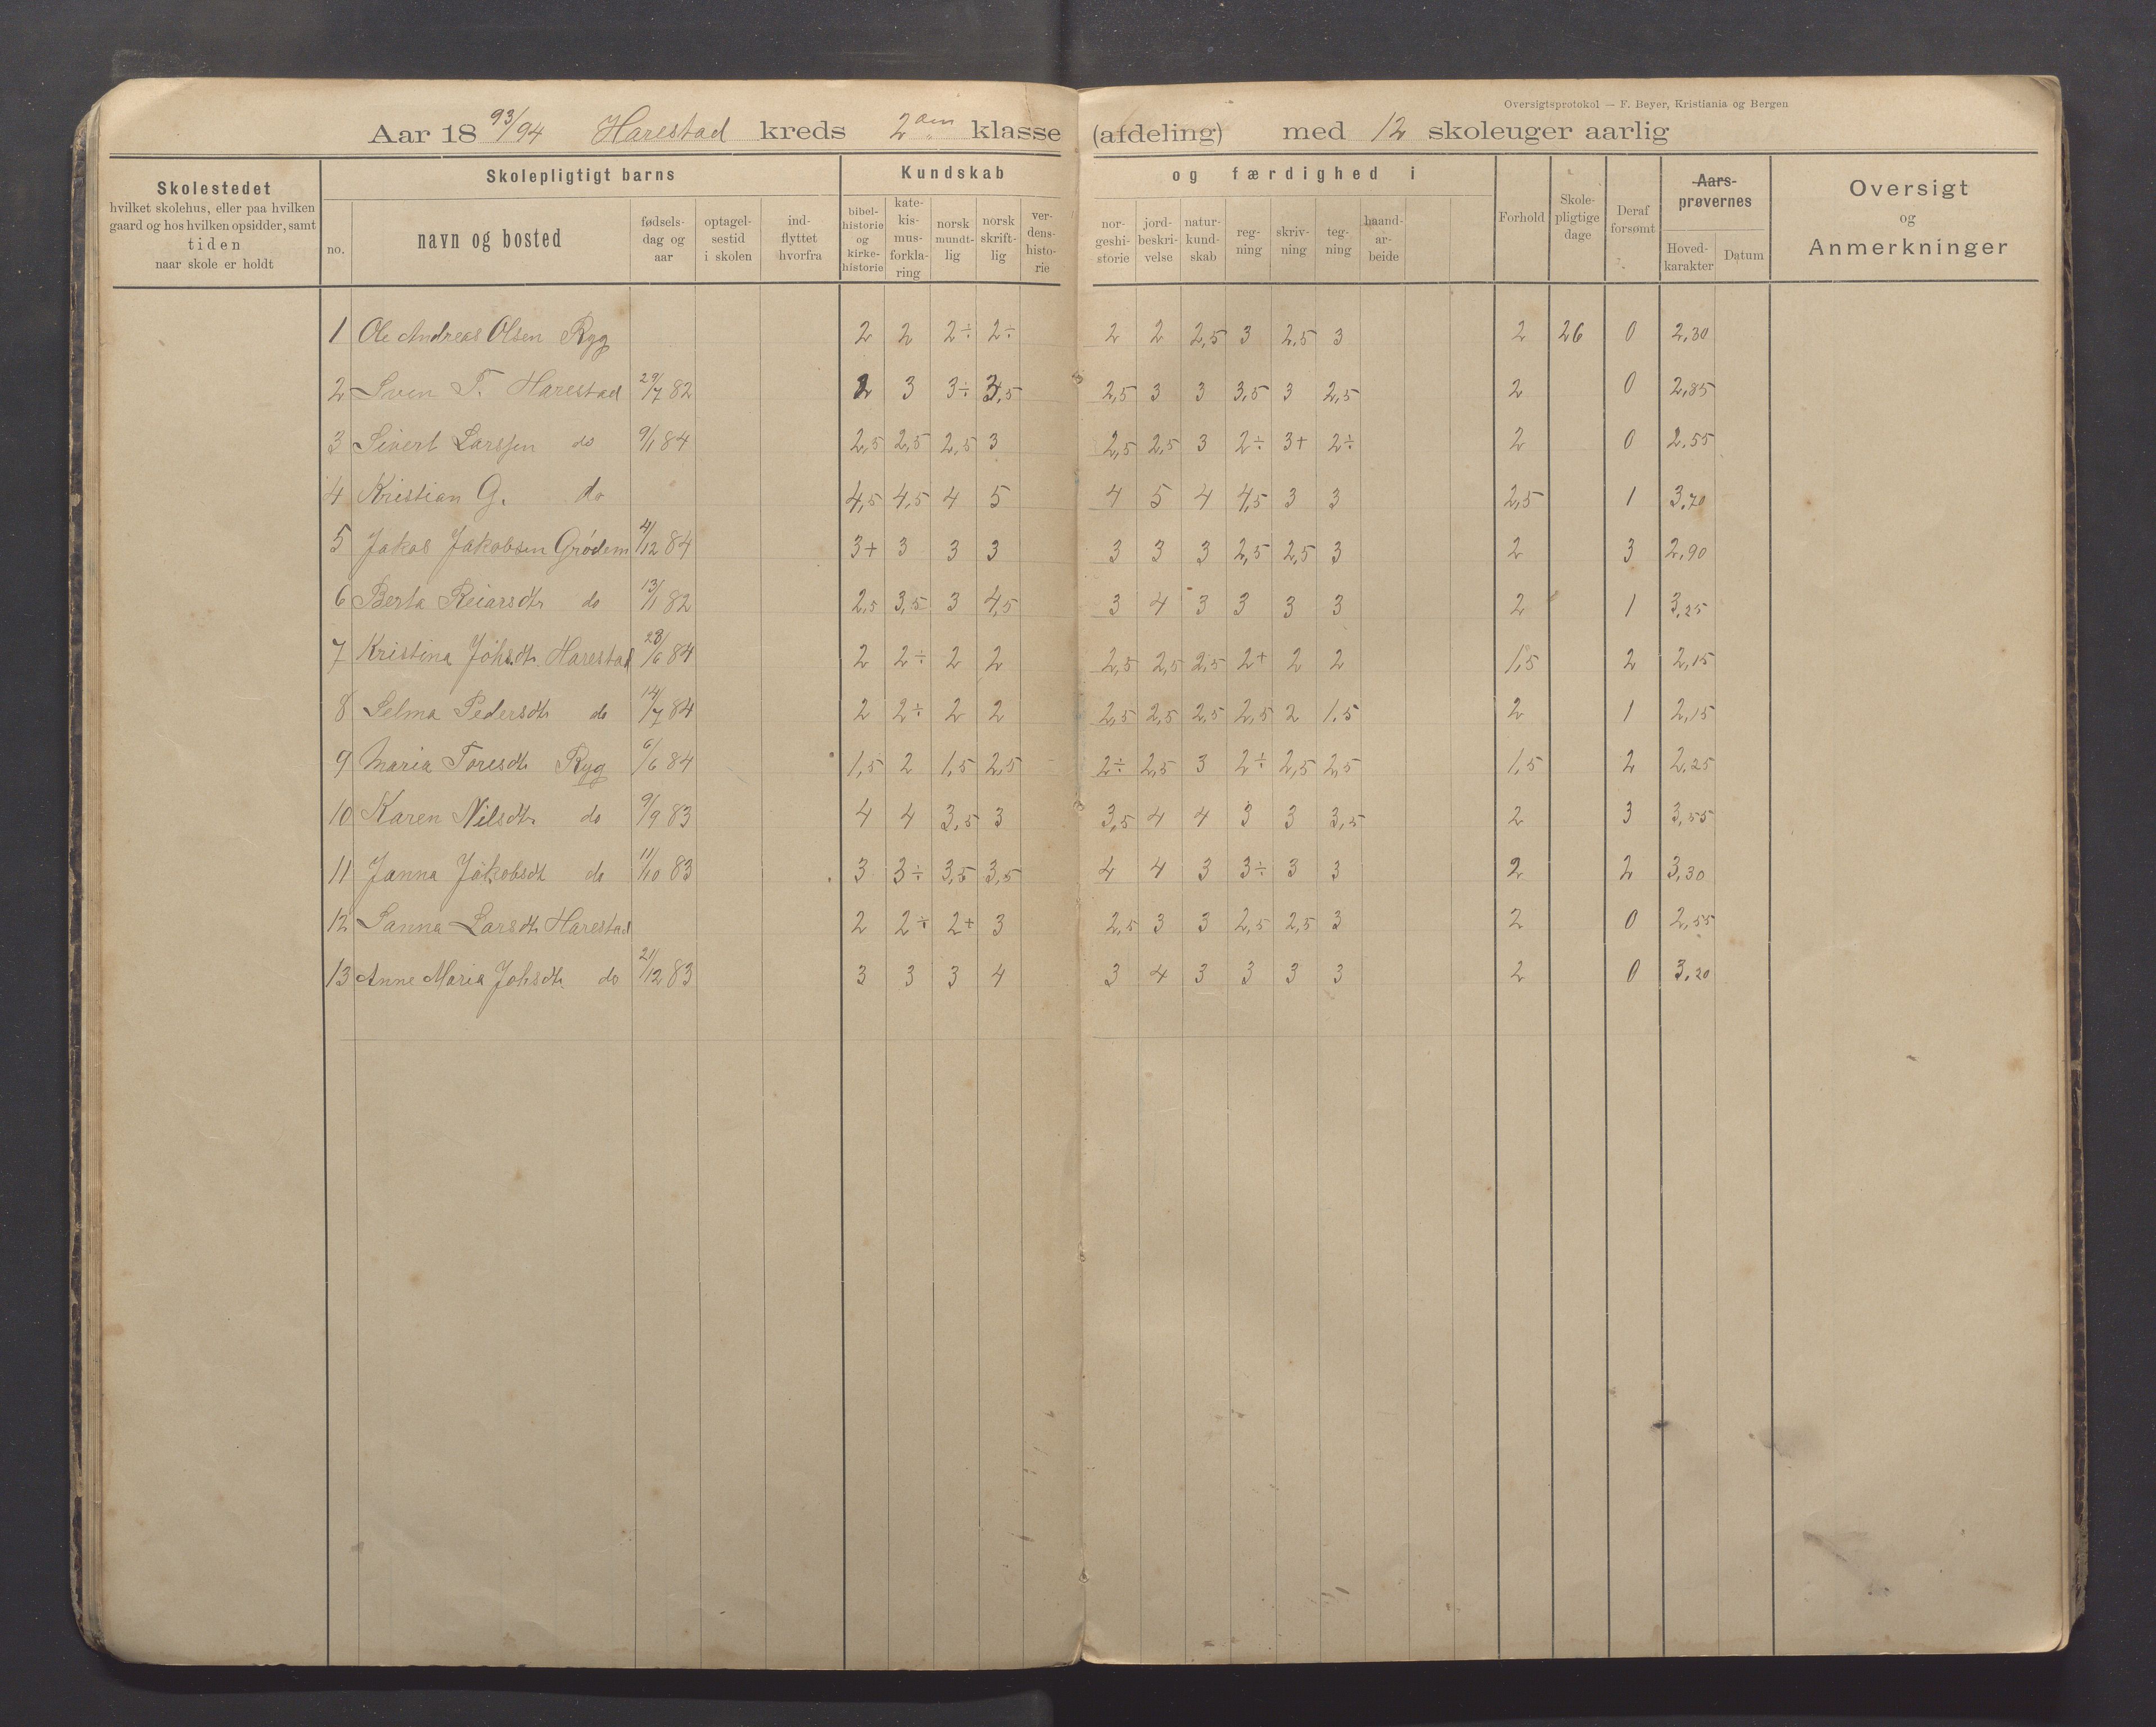 Oversigtsprotokol — F. Beyer, Kristiania og Bergen
Aar 18 93/94 Harestad kreds 2den klasse (afdeling) med 12 skoleuger aarlig
Skolestedet
hvilket skolehus, eller paa hvilken
gaard og hos hvilken opsidder, samt
tiden
naar skole er holdt
Skolepligtigt barns
no.
navn og bosted
fødsels-
dag og
aar
optagel-
sestid
i skolen
ind-
flyttet
hvorfra
Kundskab og færdighed i
bibel-
historie
og
kirke-
historie
kate-
kis-
mus-
forkla-
ring
norsk
mundt-
lig
norsk
skrift-
lig
ver-
dens-
histo-
rie
nor-
geshi-
storie
jord-
beskri-
velse
natur-
kund-
skab
reg-
ning
skriv-
ning
teg-
ning
haand-
ar-
beide
Forhold
Skole-
pligtige
dage
Deraf
forsømt
Aars-
prøvernes
Hoved-
karakter
Datum
Oversigt
og
Anmerkninger
1 Ole Andreas Olsen Ryg 2 2 2÷ 2÷ 2 2 2,5 3 2,5 3 2 26 0 2,30
2 Sven T. Harestad 29/7 82 2 3 3÷ 3,5 2,5 3 3 3,5 3 2,5 2 0 2,85
3 Sivert Larssen do 9/1 84 2,5 2,5 2,5 3 2,5 2,5 3 2÷ 3+ 2÷ 2 0 2,55
4 Kristian G. do 4,5 4,5 4 5 4 5 4 4,5 3 3 2,5 1 3,70
5 Jakob Jakobsen Grødem 4/12 84 3+ 3 3 3 3 3 3 2,5 2,5 3 2 3 2,90
6 Berta Reiarsdtr do 13/1 82 2,5 3,5 3 4,5 3 4 3 3 3 3 2 1 3,25
7 Kristina Johsdtr Harestad 28/6 84 2 2÷ 2 2 2,5 2,5 2,5 2+ 2 2 1,5 2 2,15
8 Selma Pedersdtr do 14/7 84 2 2÷ 2 2 2,5 2,5 2,5 2,5 2 1,5 2 1 2,15
9 Maria Toresdtr Ryg 6/6 84 1,5 2 1,5 2,5 2÷ 2,5 3 2÷ 2,5 2,5 1,5 2 2,25
10 Karen Nilsdtr do 9/9 83 4 4 3,5 3 3,5 4 4 3 3 3,5 2 3 3,55
11 Janna Jakobsdt do 11/10 83 3 3÷ 3,5 3,5 4 4 3 3÷ 3 3 2 2 3,30
12 Sanna Larsdtr Harestad 2 2÷ 2+ 3 2,5 3 3 2,5 2,5 3 2 0 2,55
13 Anne Maria Johsdtr do 21/12 83 3 3 3 4 3 4 3 3 3 3 2 0 3,20